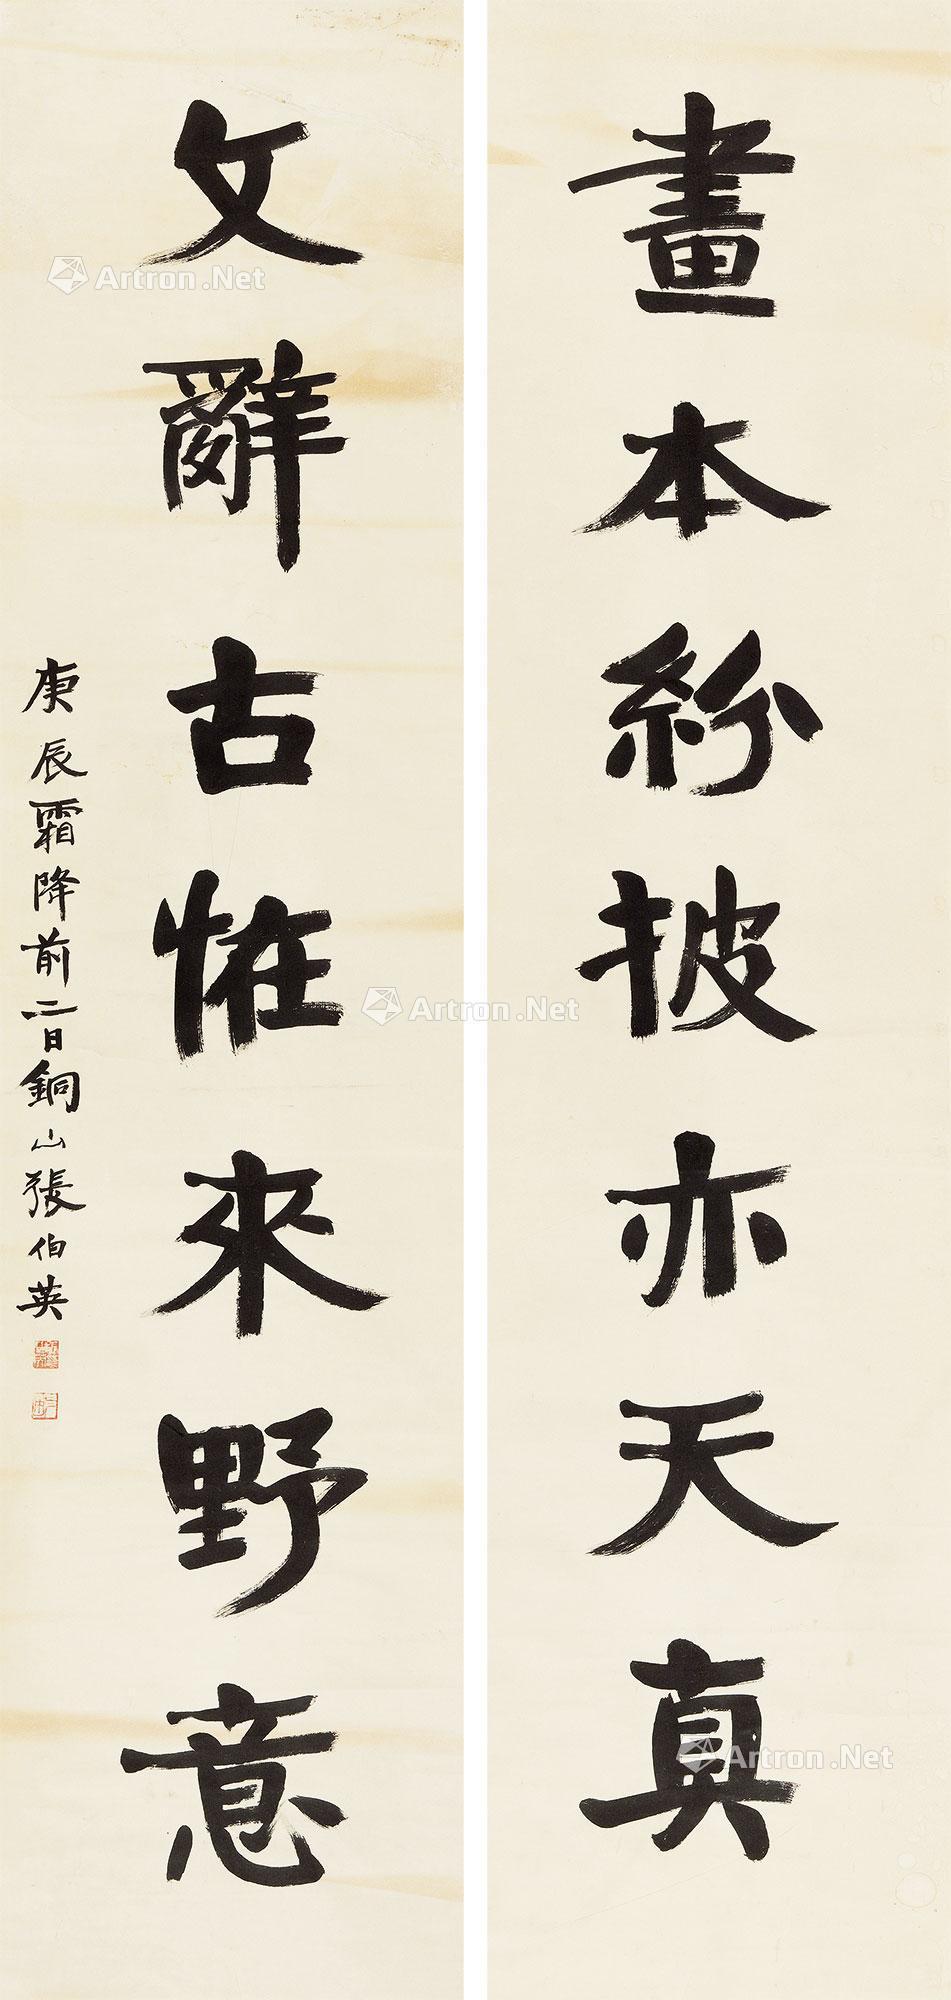 畫本紛披亦天真
文辭古恠來野意
庚辰霜降前二日銅山張伯英
Artron.Net
Artron.Net
Artron.Net